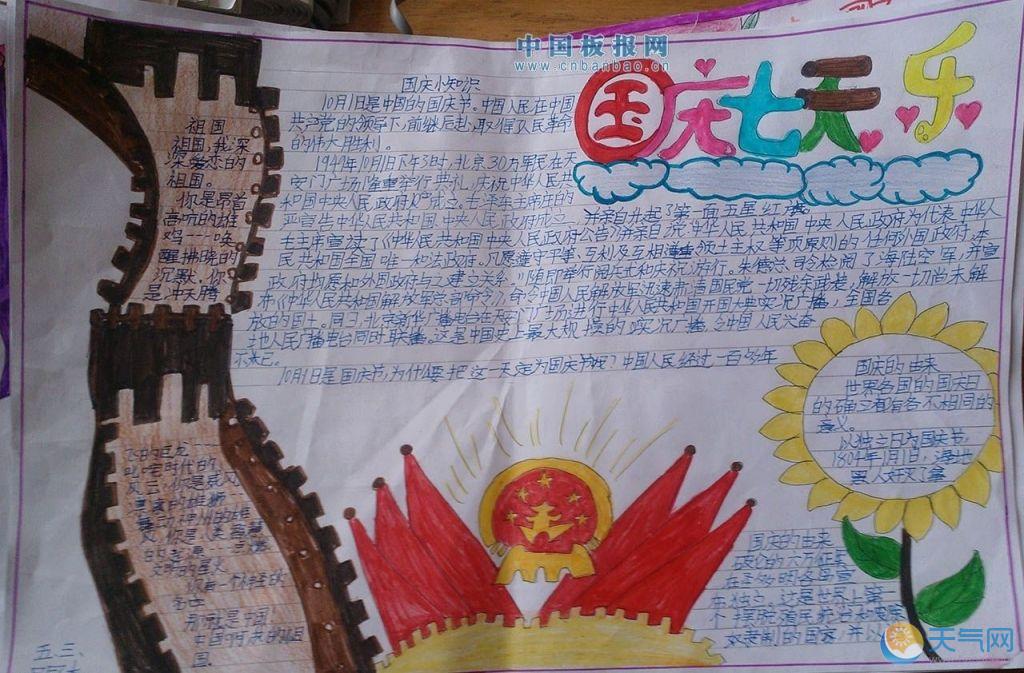 中国板报网
www.cnbanbao.cn
国庆七天乐
国庆小知识
10月1日是中国的国庆节。中国人民在中国
共产党的领导下,前继后赴,取得人民革命
的伟大胜利。
1949年10月1日下午3时,北京30万军民在天
安门广场隆重举行典礼,庆祝中华人民共
和国中央人民政府成立。毛泽东主席庄
严宣告中华人民共和国中央人民政府成立,并亲自升起了第一面五星红旗。
毛主席宣读了《中华人民共和国中央人民政府公告》
民共和国全国唯一和法政府。凡愿遵守平等、互利及互相尊重领土主权等项原则的任何外国政府,本
政府均愿和外国政府与之建立关系。"随即举行阅兵式和庆祝游行。朱德总司令检阅了海陆空军,并宣
布《中华人民共和国解放军总司令命令》,命令中国人民解放军迅速
放的国土。同日,北京新华广播电台在天安门广场进行中华人民共和国开国大典实况广播,全国各
地人民广播电台同时联播。这是中国史上最大规模的实况广播
不来已。
10月1日是国庆节,为什么要把这一天定为国庆节呢?中国人民经过一百多年
祖国
祖国,我深
深爱恋的
祖国。
你是昂首
高吭的雄
鸡一唤
醒拂晓的
沉默,你
是冲天腾
飞的巨龙
叱咤时代的
风云,你是威风
凛凛的雄狮
舞动神州的雄
风,你是人类智慧
的起源
文明的星火
你有一个
那就是中国!
中国
国。
国庆的由来
世界各国的国庆日
的确立有着各不相同的
意义。
以独立日为国庆节,
1804年1月1日,海地
黑人
国庆的由来
布独立。这是世界上第一
五.三、
天气网